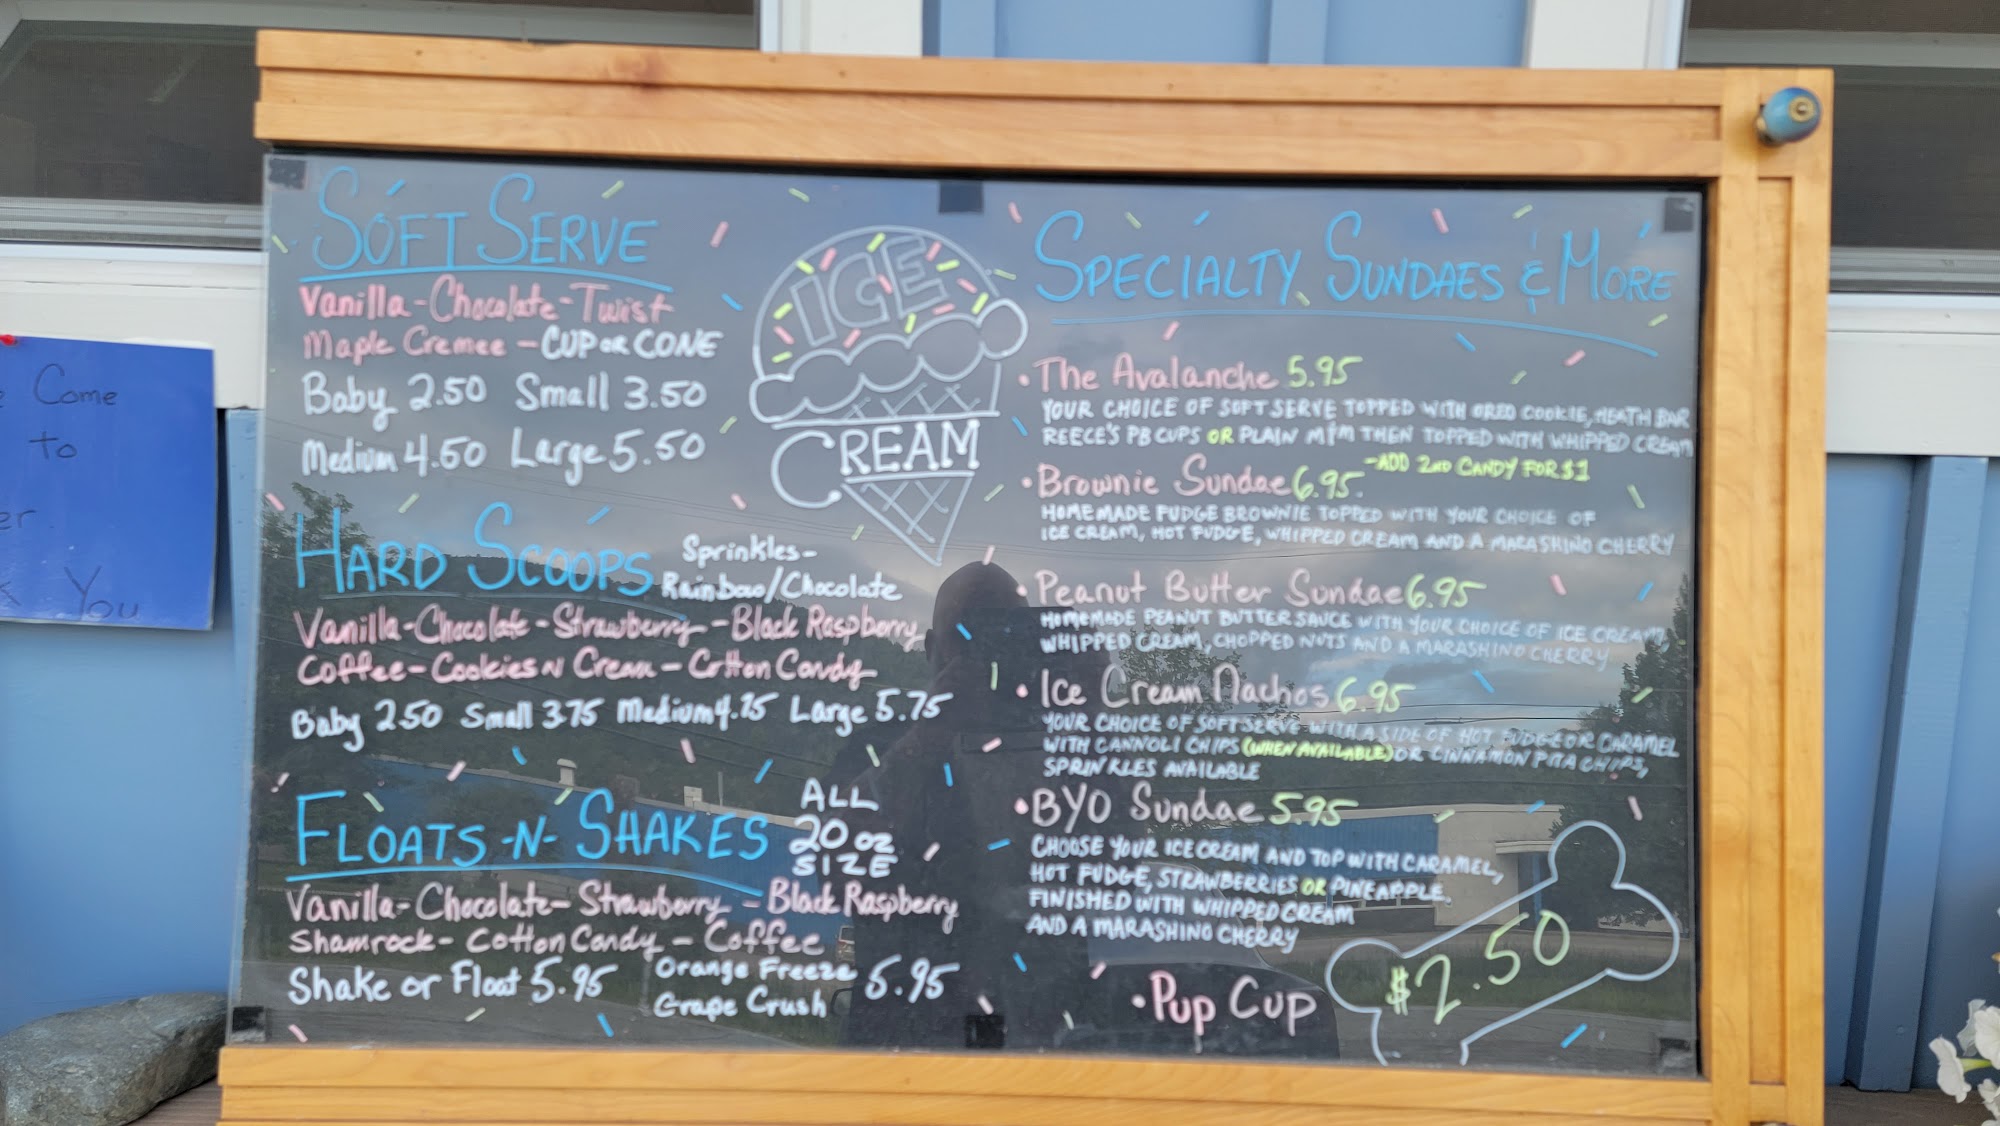 Come
to
er.
You
SOFT SERVE
Vanilla-Chocolate-Twist
Maple Cremee - CUP OR CONE
Baby 2.50 Small 3.50
Medium 4.50 Large 5.50
ICE
CREAM
HARD SCOOPS
Sprinkles-
Rainbow/Chocolate
Vanilla-Chocolate-Strawberry-Black Raspberry
Coffee-Cookies N Cream-Cotton Candy
Baby 2.50 Small 3.75 Medium 4.75 Large 5.75
FLOATS -N- SHAKES
ALL
20 oz
SIZE
Vanilla-Chocolate-Strawberry-Black Raspberry
Shamrock-Cotton Candy-Coffee
Shake or Float 5.95
Orange Freeze
Grape Crush
5.95
SPECIALTY SUNDAES & MORE
•The Avalanche 5.95
YOUR CHOICE OF SOFT SERVE TOPPED WITH OREO COOKIE, HEATH BAR
REECE'S PB CUPS OR PLAIN M&M THEN TOPPED WITH WHIPPED CREAM
-ADD 2ND CANDY FOR $1
•Brownie Sundae 6.95
HOMEMADE FUDGE BROWNIE TOPPED WITH YOUR CHOICE OF
ICE CREAM, HOT FUDGE, WHIPPED CREAM AND A MARASHINO CHERRY
•Peanut Butter Sundae 6.95
HOMEMADE PEANUT BUTTER SAUCE WITH YOUR CHOICE OF ICE CREAM,
WHIPPED CREAM, CHOPPED NUTS AND A MARASHINO CHERRY
•Ice Cream Nachos 6.95
YOUR CHOICE OF SOFT SERVE WITH A SIDE OF HOT FUDGE OR CARAMEL
WITH CANNOLI CHIPS (WHEN AVAILABLE) OR CINNAMON PITA CHIPS,
SPRINKLES AVAILABLE
•BYO Sundae 5.95
CHOOSE YOUR ICE CREAM AND TOP WITH CARAMEL,
HOT FUDGE, STRAWBERRIES OR PINEAPPLE.
FINISHED WITH WHIPPED CREAM
AND A MARASHINO CHERRY
•Pup Cup
$2.50